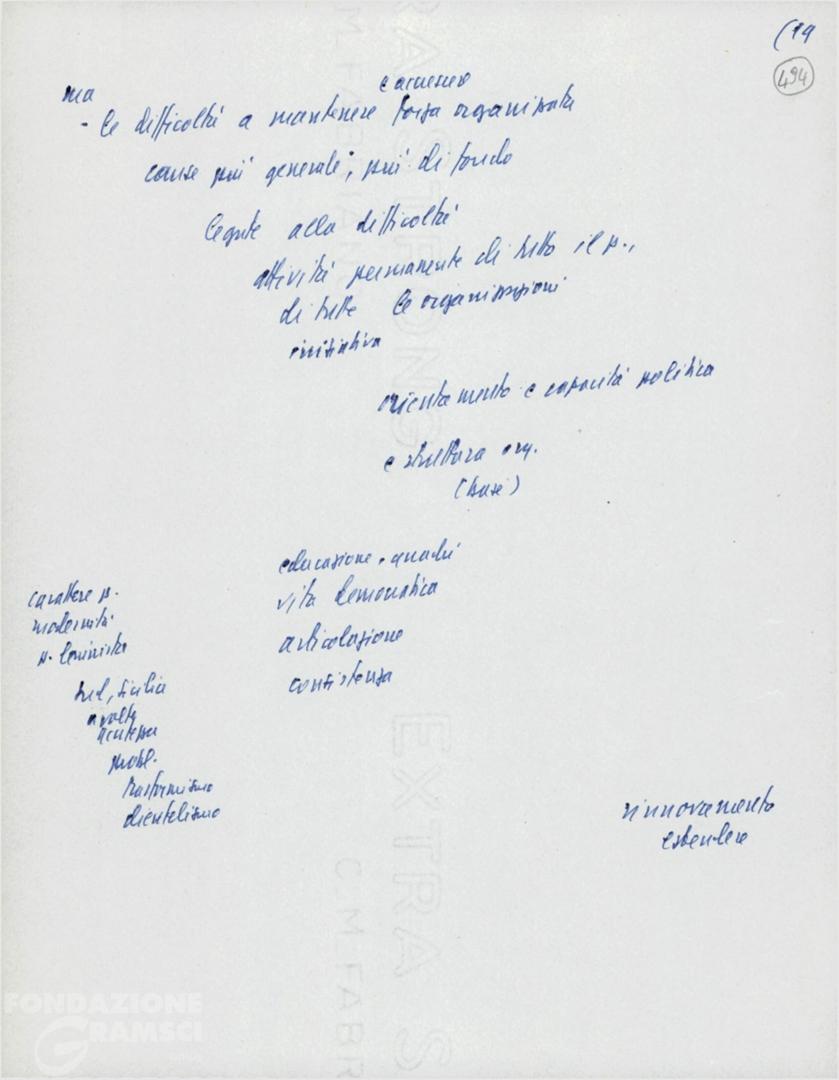 (19
494
ma
e accrescere
- le difficoltà a mantenere forza organizzata
cause più generale, più di fondo
legate alla difficoltà
attività permanente di tutto il p.,
di tutte le organizzazioni
iniziativa
orientamento e capacità politica
e struttura org.
(base)
educazione, quadri
vita democratica
articolazione
consistenza
carattere p.
modernità
p. leninista
Sud, Sicilia
a volte
acutezza
probl.
trasformismo
clientelismo
rinnovamento
estendere
EXTRA STRONG
C.M.FABRIANO
EXTRA S
C.M.FABR
FONDAZIONE
GRAMSCI